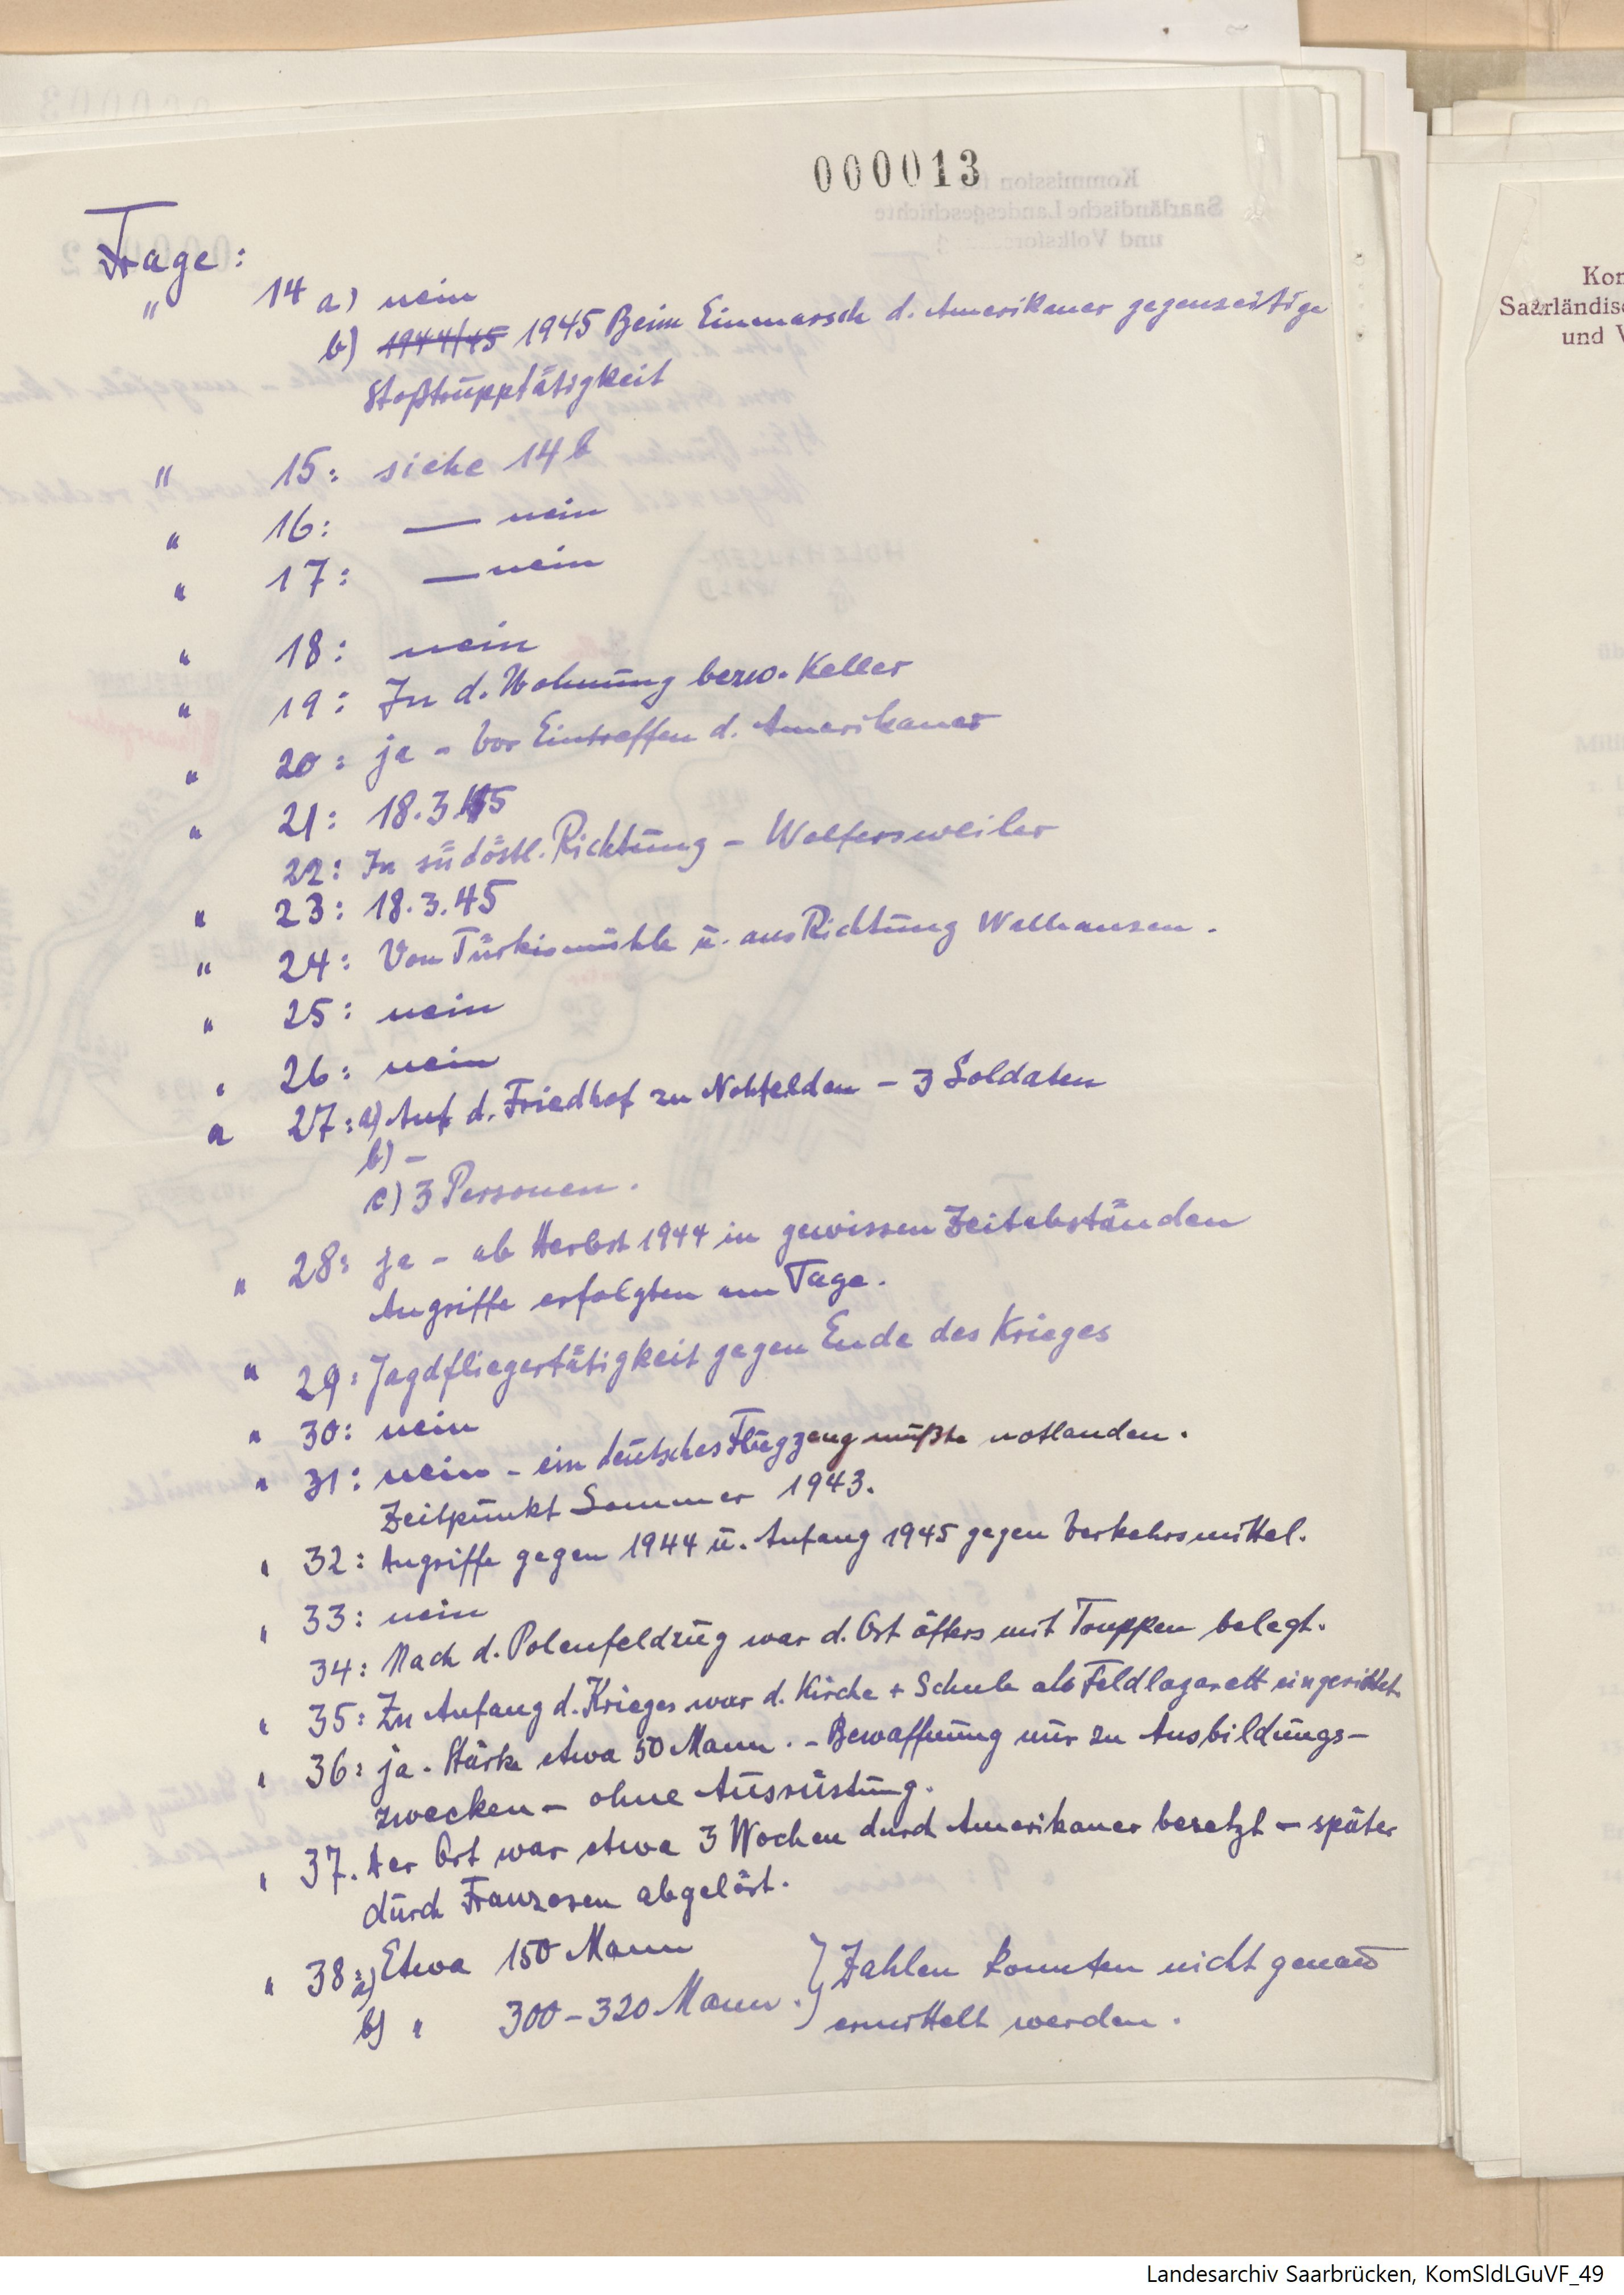 000013
Frage:
" 14 a) nein
b) 1944/45 1945 Beim Einmarsch d. Amerikaner gegenseitige
Stoßtrupptätigkeit
" 15: siehe 14 b
" 16: — nein
" 17: — nein
" 18: nein
" 19: In d. Wohnung bezw. Keller
" 20: ja - vor Eintreffen d. Amerikaner
" 21: 18.3.45
22: In südöstl. Richtung - Wolfersweiler
" 23: 18.3.45
" 24: Von Türkismühle u. aus Richtung Walhausen.
" 25: nein
" 26: nein
" 27: a) Auf d. Friedhof zu Nohfelden - 3 Soldaten
b) -
c) 3 Personen.
" 28: ja - ab Herbst 1944 in gewissen Zeitabständen
Angriffe erfolgten am Tage.
" 29: Jagdfliegertätigkeit gegen Ende des Krieges
" 30: nein
" 31: nein - ein deutsches Flugzeug mußte notlanden.
Zeitpunkt Sommer 1943.
" 32: Angriffe gegen 1944 u. Anfang 1945 gegen Verkehrsmittel.
" 33: nein
34: Nach d. Polenfeldzug war d. Ort öfters mit Truppen belegt.
" 35: Zu Anfang d. Krieges war d. Kirche + Schule als Feldlazarett eingerichtet.
" 36: ja. Stärke etwa 50 Mann. - Bewaffnung nur zu Ausbildungs-
zwecken - ohne Ausrüstung.
" 37. Der Ort war etwa 3 Wochen durch Amerikaner besetzt - später
durch Franzosen abgelöst.
" 38: a) Etwa 150 Mann
b) " 300 - 320 Mann. } Zahlen konnten nicht genau
ermittelt werden.
Kom
Saarländisc
und V
Landesarchiv Saarbrücken, KomSldLGuVF_49